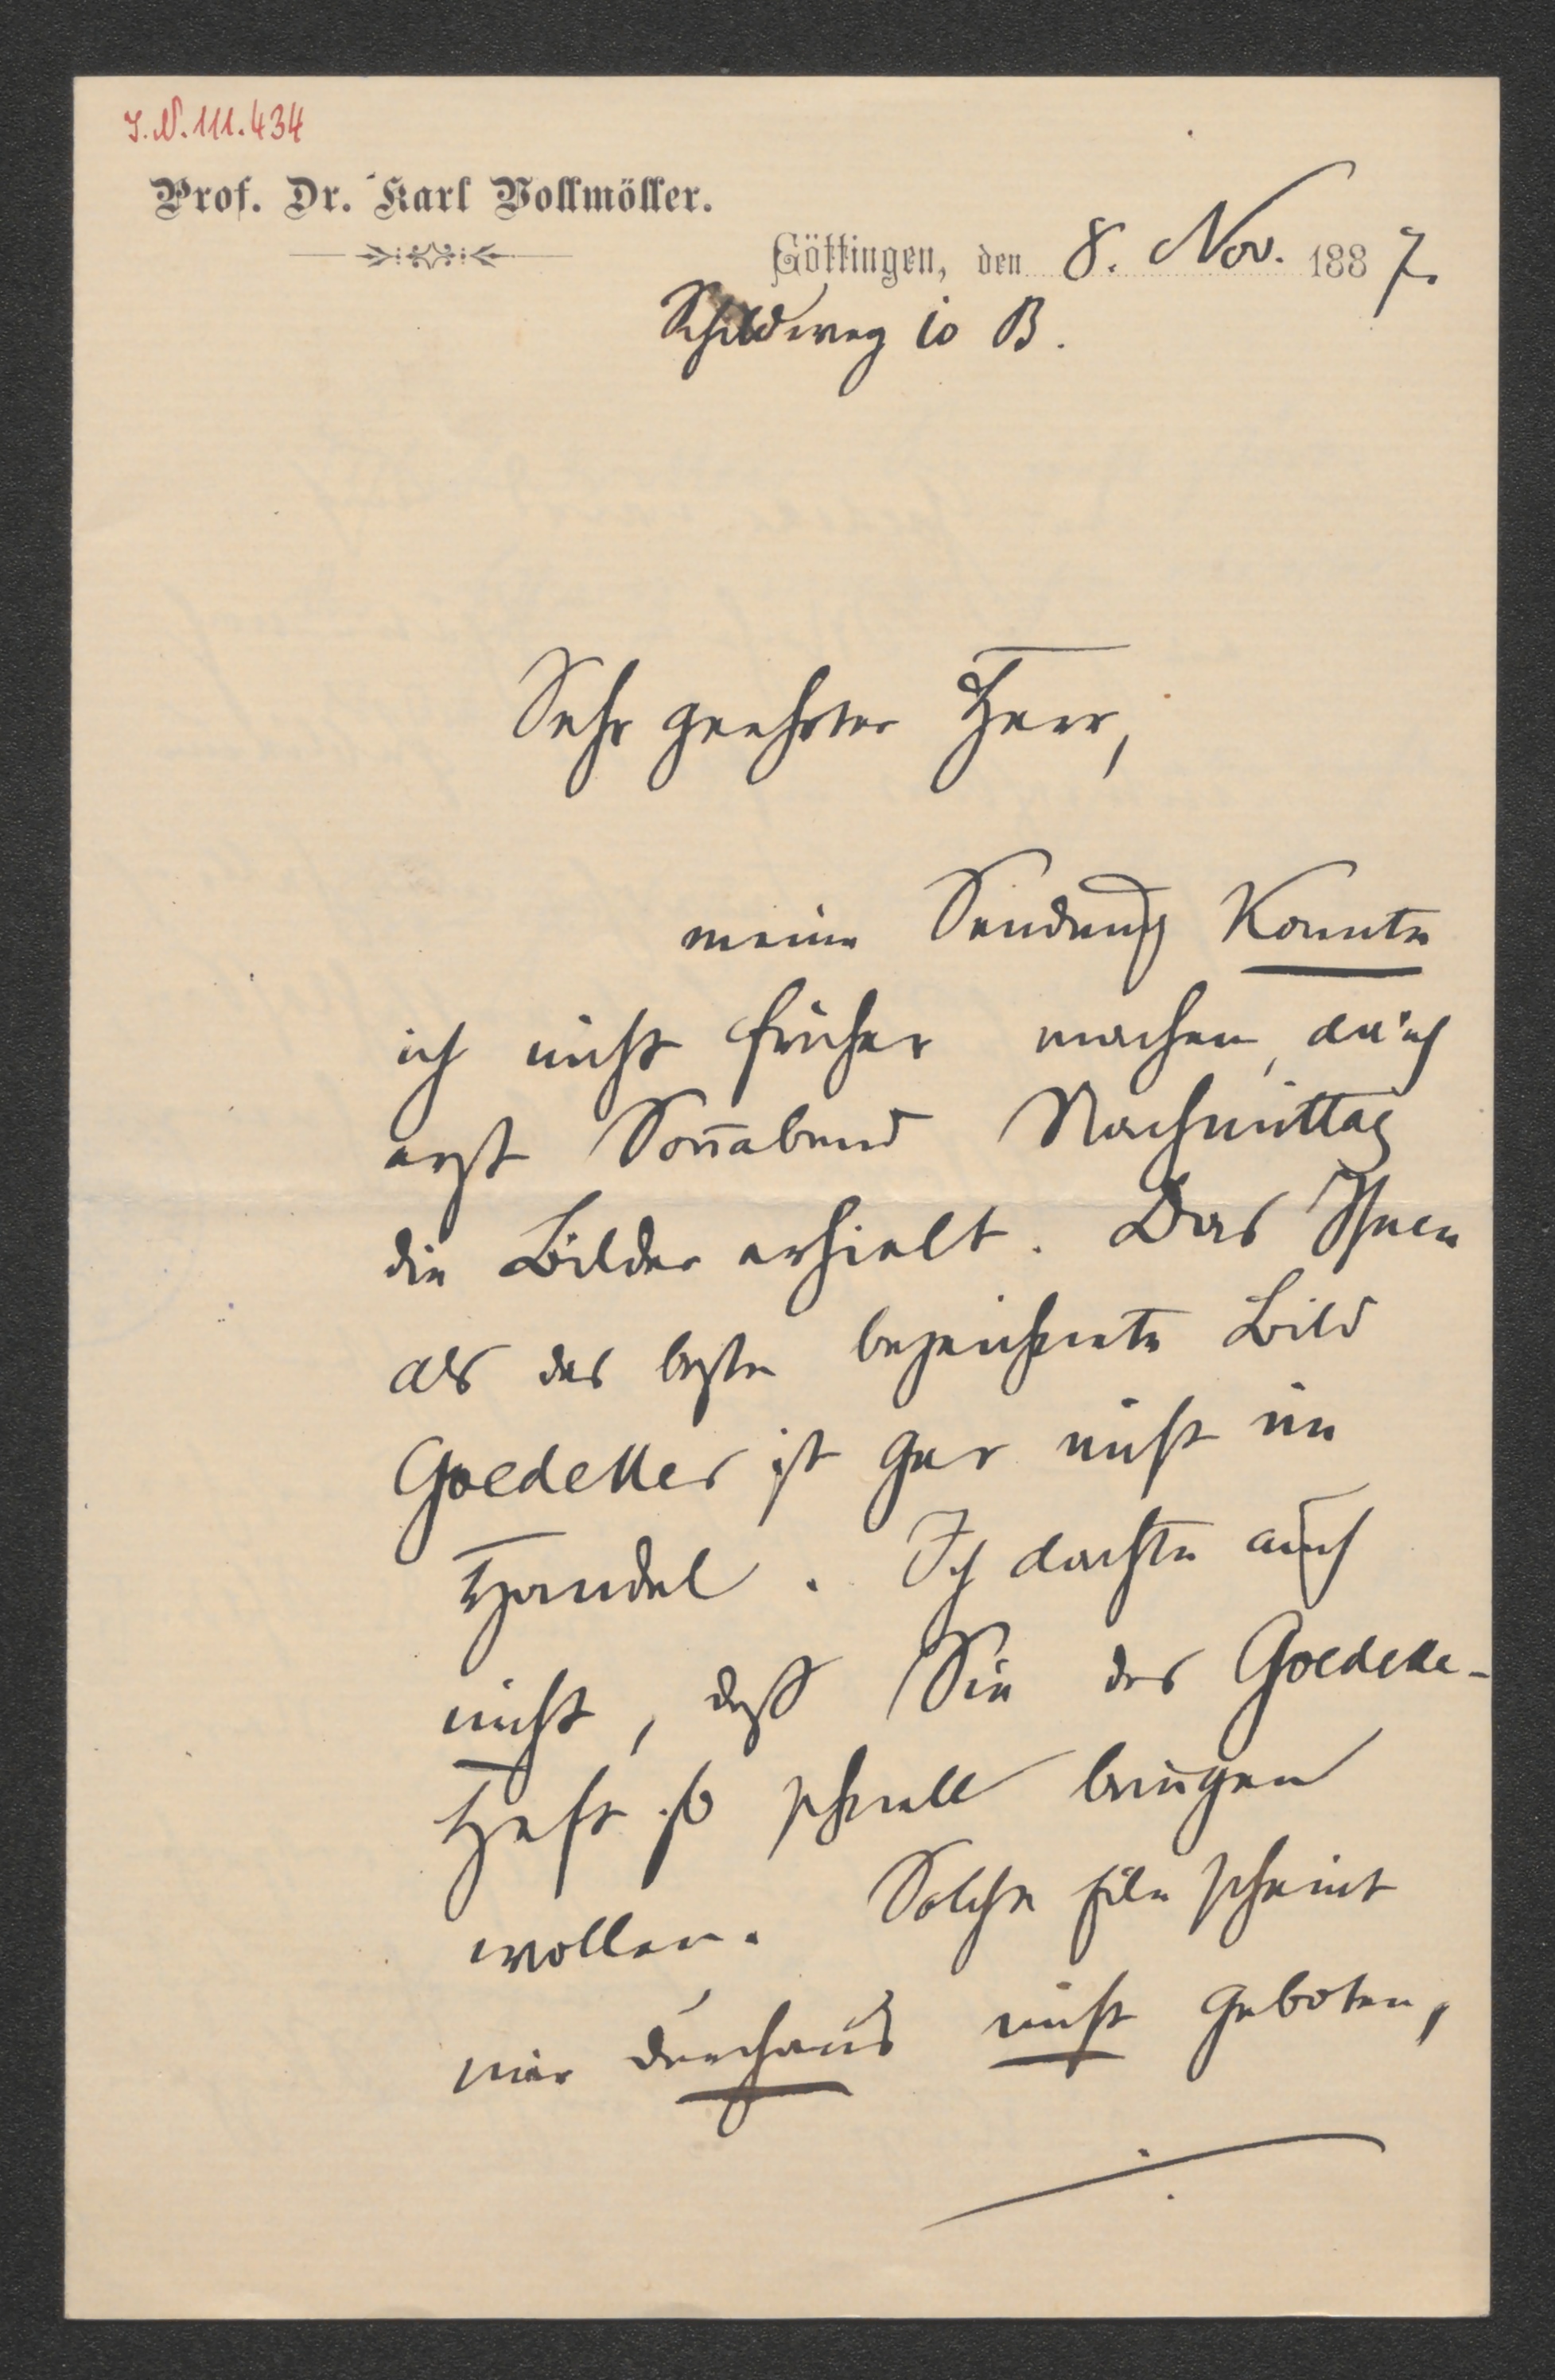 I.N. 111.434
Prof. Dr. Karl Vollmöller.
Göttingen, den 8. Nov. 1887.
Schildweg 10 B.
Sehr geehrter Herr,
meine Sendung konnte
ich nicht früher machen, da ich
erst Son̅abend Nachmittag
die Bilder erhielt. Das Ihnen
als das beste bezeichnete Bild
Goedekes ist gar nicht im
Handel. Ich dachte auch
nicht, daß Sie das Goedeke-
Heft so schnell bringen
wollen. Solche Eile scheint
mir durchaus nicht geboten,